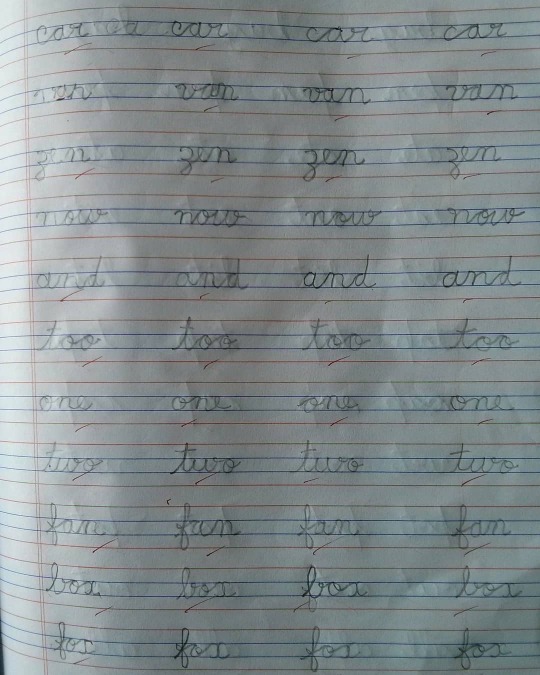 car ca car car car
van van van van
zen zen zen zen
now now now now
and and and and
too too too too
one one one one
two two two two
fan fun fan fan
box box box box
fox fox fox fox